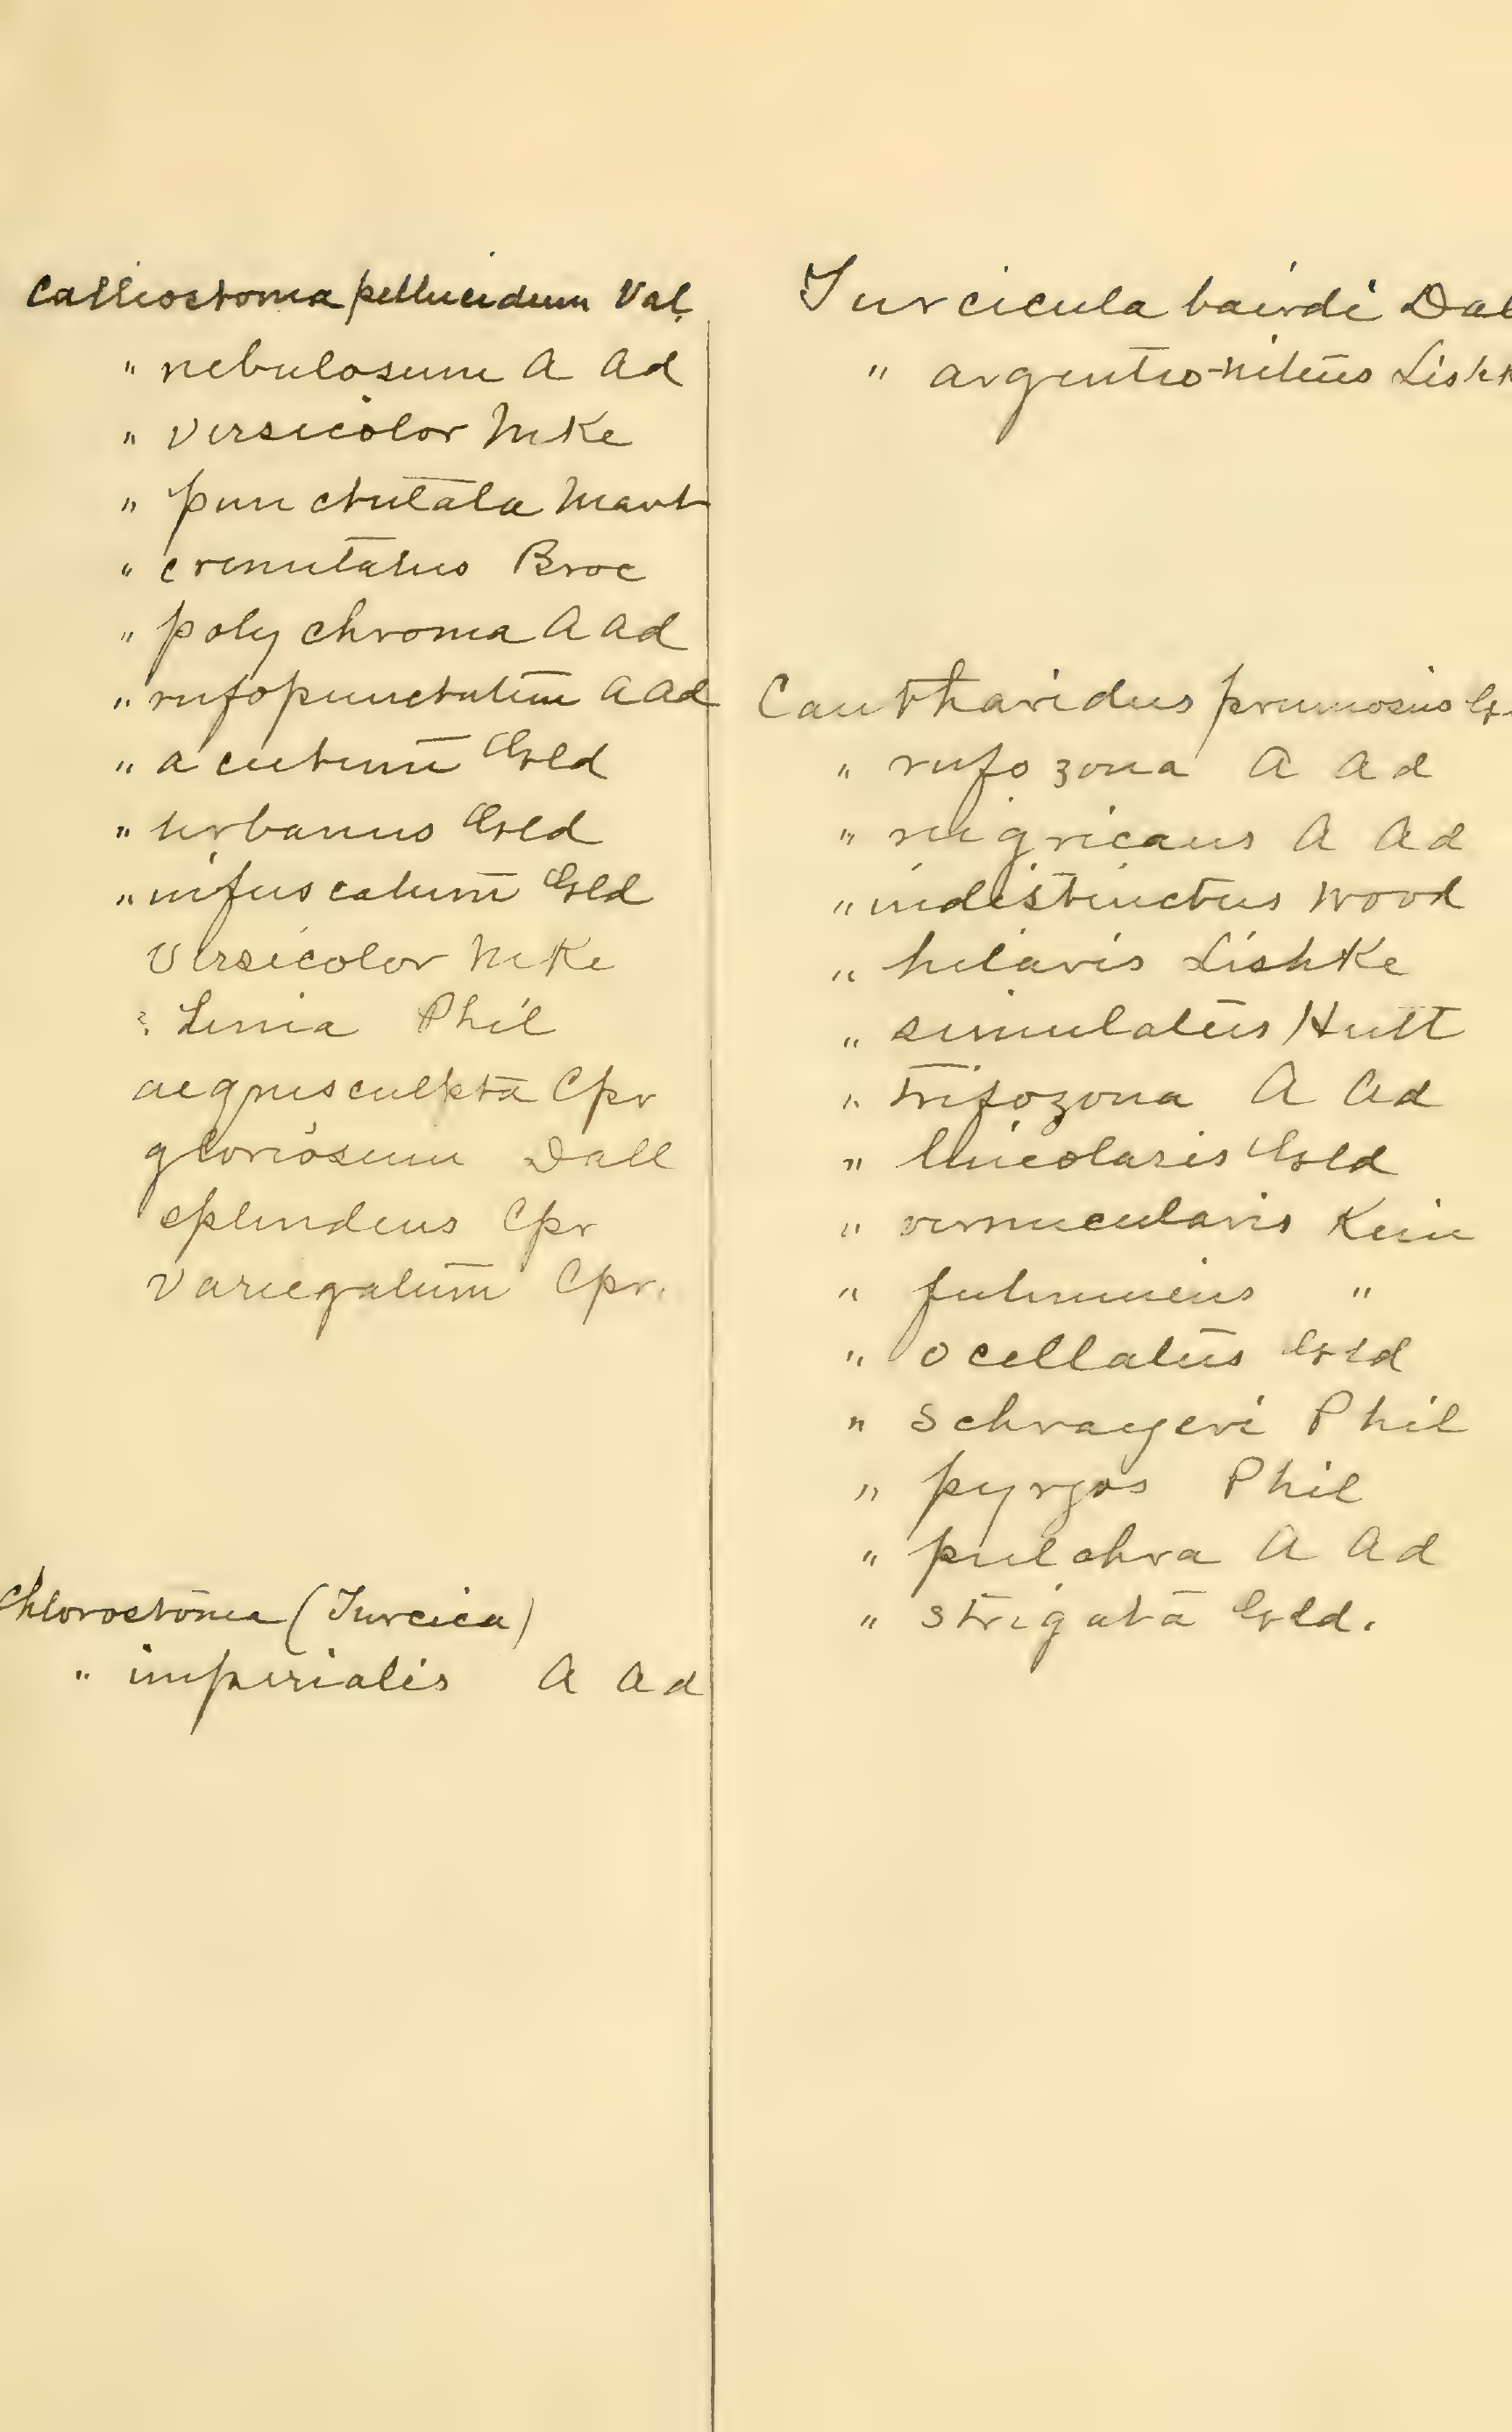 Calliostoma pellucidum Val
" nebulosum A Ad
" versicolor Mke
" punctulata Mart
" crenulatus Broc
" polychroma A Ad
" rufopunctatum A Ad
" acutum Gld
" urbanus Gld
" infuscatum Gld
Versicolor Mke
: Lima Phil
aequisculpta Cpr
gloriosum Dall
splendens Cpr
Variegatum Cpr.
Chlorostoma (Turcica)
" imperialis A Ad
Turcicula bairdi Dal
" argenteo-nitens Lishk
Cantharidus pruinosus G
" rufozona A Ad
" nigricans A Ad
" indistinctus Wood
" hilaris Lishke
" simulatus Hutt
" A Ad
" lineolaris Gld
" vermicularis
" fulmineus "
" ocellatus Gld
" schrayeri Phil
" pyrgos Phil
" pulchra A Ad
" strigata Gld.